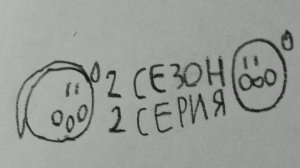 2 СЕЗОН
2 СЕРИЯ